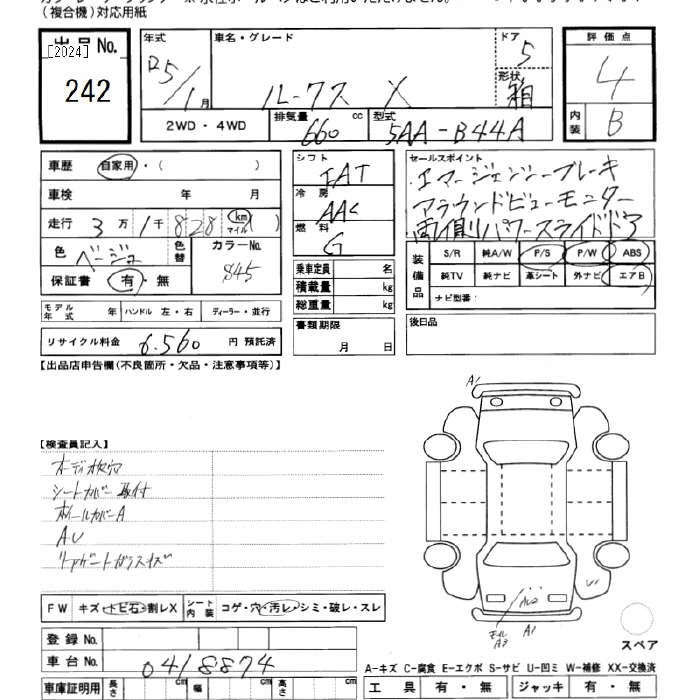 (複合機)対応用紙
出品No.
[2024]
242
年式
R5/1月
車名・グレード
ルークス X
ドア
5
形状
箱
2WD・4WD
排気量
660 cc
型式
5AA-B44A
評価点
4
内装
B
車歴 自家用・( )
車検 年 月
走行 3万1千828 km マイル ( )
色 ベージュ
色替
カラーNo.
845
保証書 有・無
シフト
IAT
冷房
AAC
燃料
G
乗車定員 名
積載量 kg
総重量 kg
書類期限
月 日
セールスポイント
エマージェンシーブレーキ
アラウンドビューモニター
両側パワースライドドア
装備品
S/R 純A/W P/S P/W ABS
純TV 純ナビ 革シート 外ナビ エアB
ナビ型番:
後日品
モデル年式 年 ハンドル 左・右 ディーラー・並行
リサイクル料金 6.560 円 預託済
【出品店申告欄(不良箇所・欠品・注意事項等)】
【検査員記入】
オーディオ検穴
シートカバー取付
ホイールカバーA
AU
リアゲートガラスキズ
FW キズ・トビ石・割レX
シート内装 コゲ・穴・汚レ・シミ・破レ・スレ
登録No.
車台No. 0418874
車庫証明用 長さ cm 幅 cm 高さ cm
A1
A1
U
スペア
A-キズ C-腐食 E-エクボ S-サビ U-凹ミ W-補修 XX-交換済
工具 有・無 ジャッキ 有・無